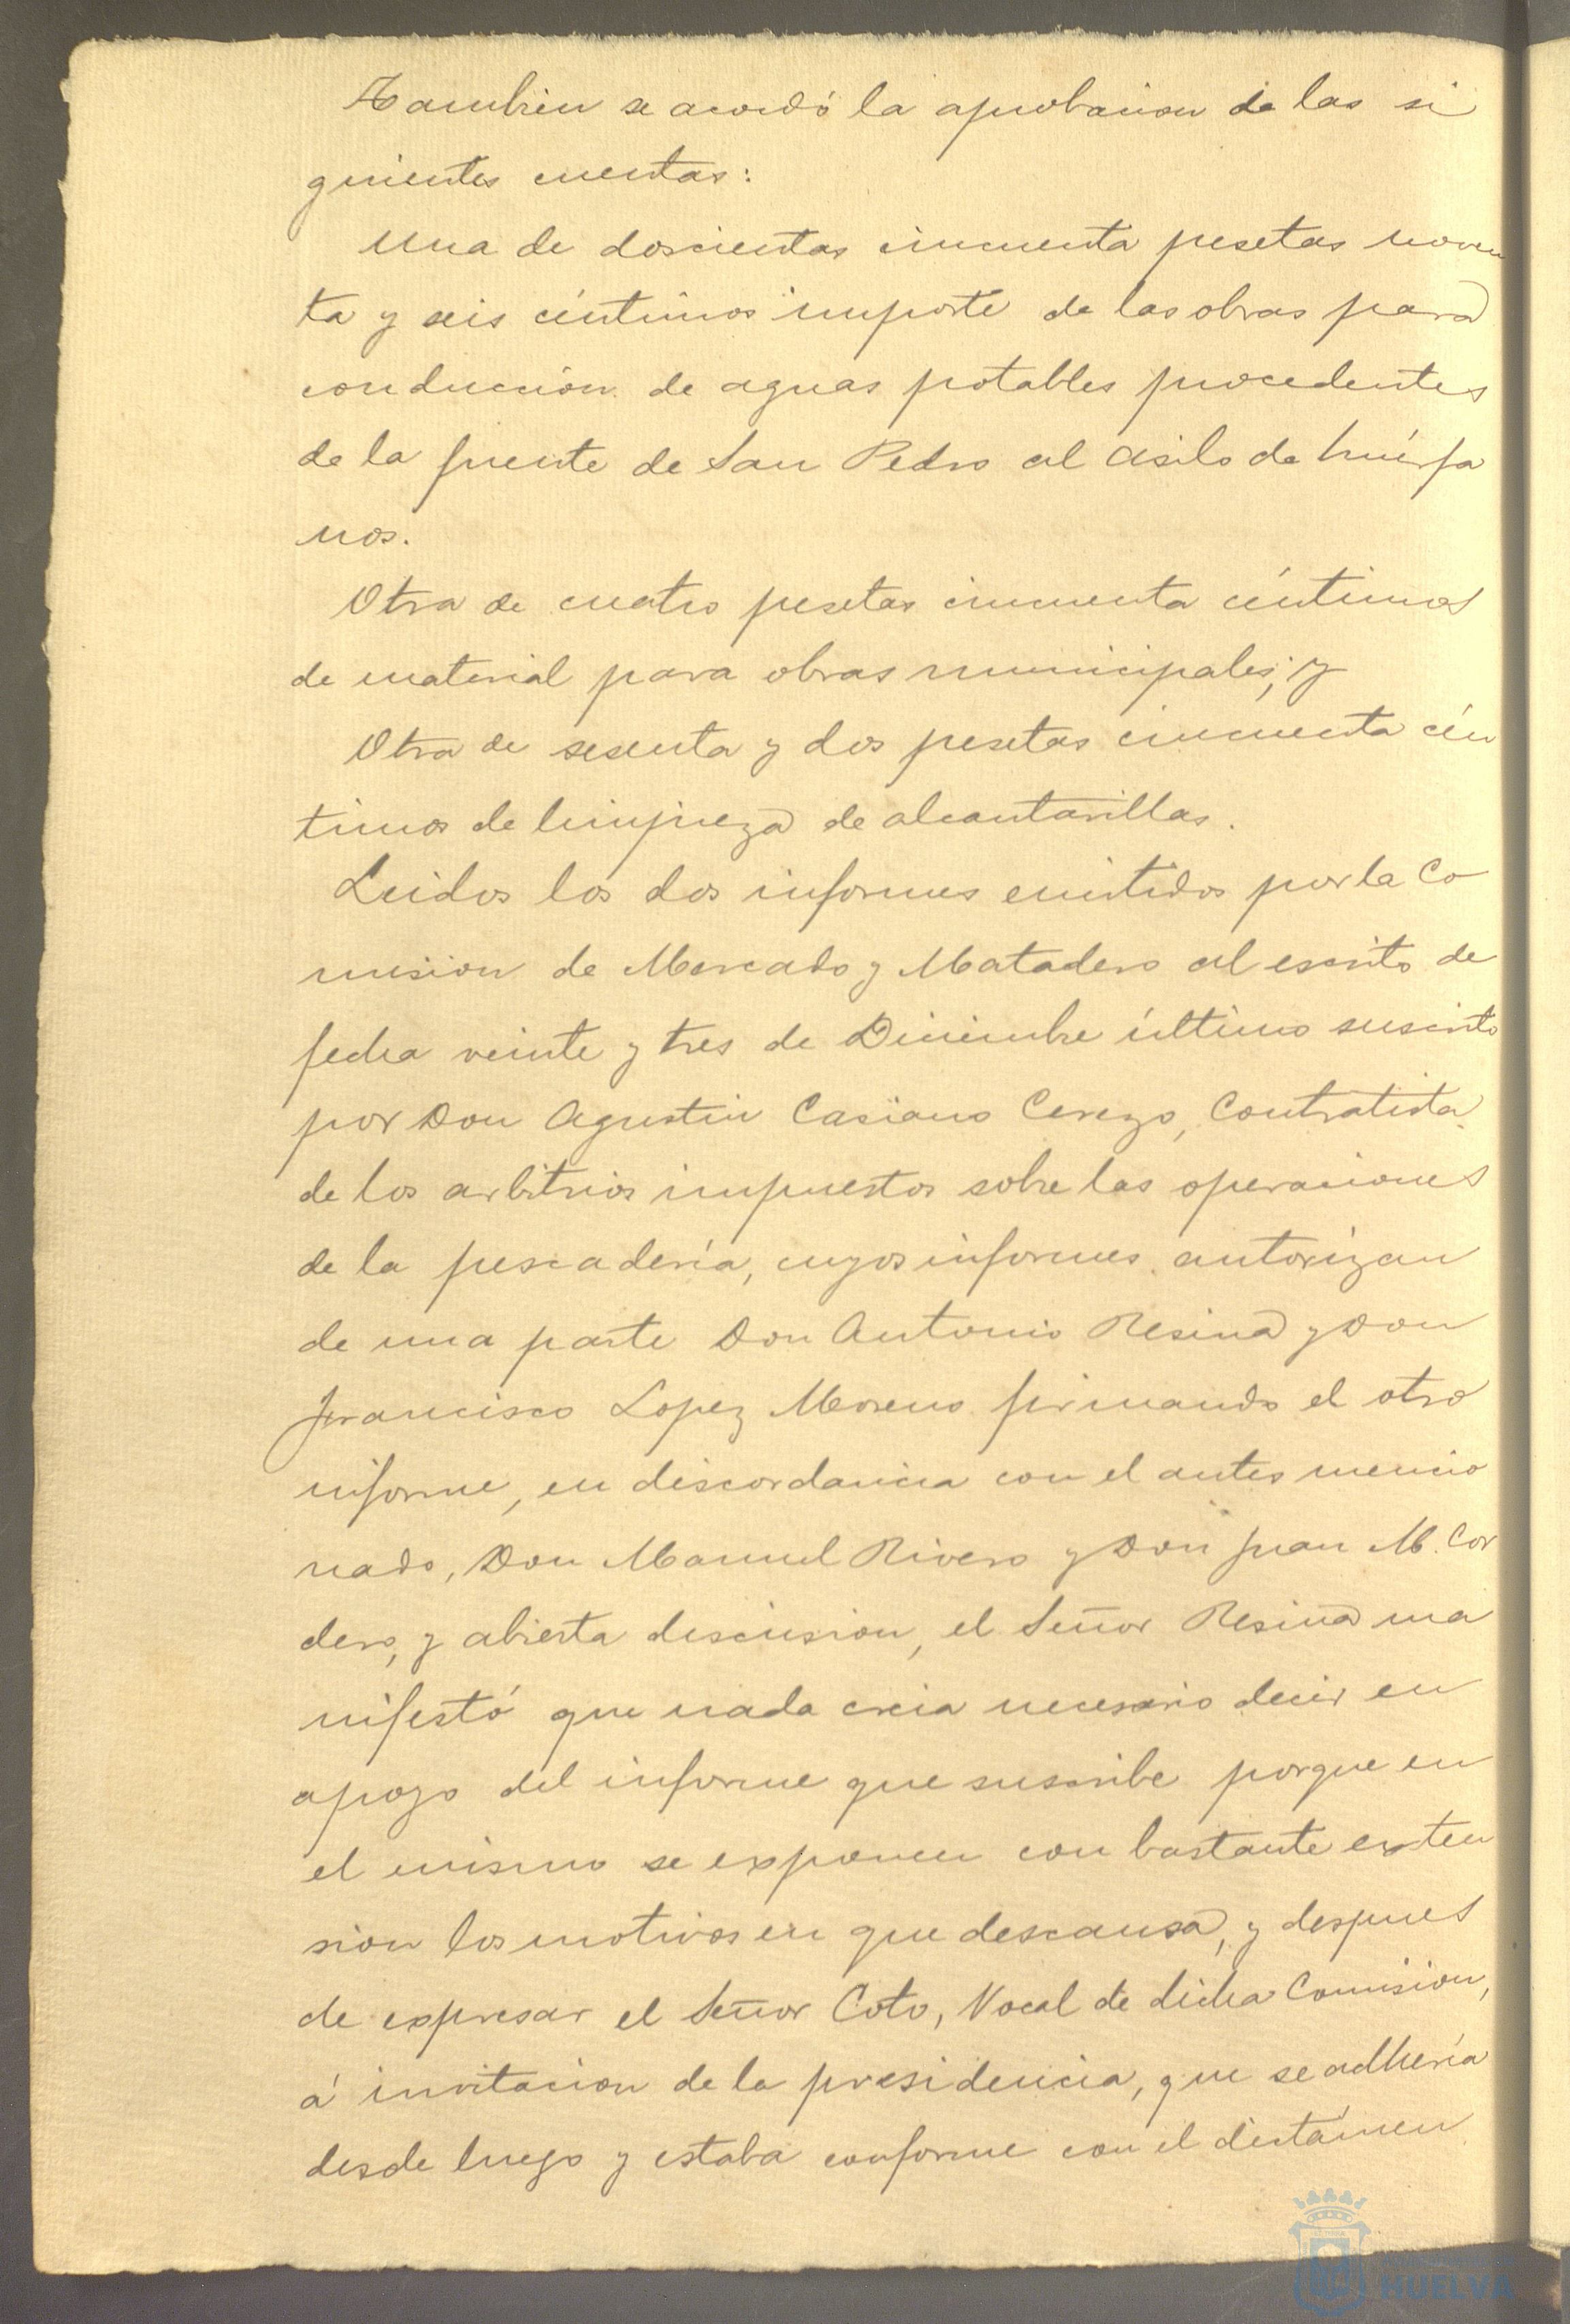 Tambien se acordó la aprobacion de las si
guientes cuentas:
Una de doscientas cincuenta pesetas noven
ta y seis céntimos importe de las obras para
conduccion de aguas potables procedentes
de la fuente de San Pedro al Asilo de huérfa
nos.
Otra de cuatro pesetas cincuenta céntimos
de material para obras municipales; y
Otra de sesenta y dos pesetas cincuenta cén
timos de limpieza de alcantarillas.
Leidos los dos informes emitidos por la Co
mision de Mercado y Matadero al escrito de
fecha veinte y tres de Diciembre último suscrito
por Don Agustin Casiano Cerezo, Contratista
de los arbitrios impuestos sobre las operaciones
de la pescadería, cuyos informes autorizan
de una parte Don Antonio Resina y Don
Francisco Lopez Moreno firmando el otro
informe, en discordancia con el antes mencio
nado, Don Manuel Rivero y Don Juan M. Cor
dero, y abierta discusion, el Señor Resina ma
nifestó que nada creia necesario decir en
apoyo del informe que suscribe porque en
el mismo se exponen con bastante exten
sion los motivos en que descansa, y despues
de expresar el Señor Coto, Vocal de dicha Comision,
á invitacion de la presidencia, que se adhería
desde luego y estaba conforme con el dictámen
HUELVA